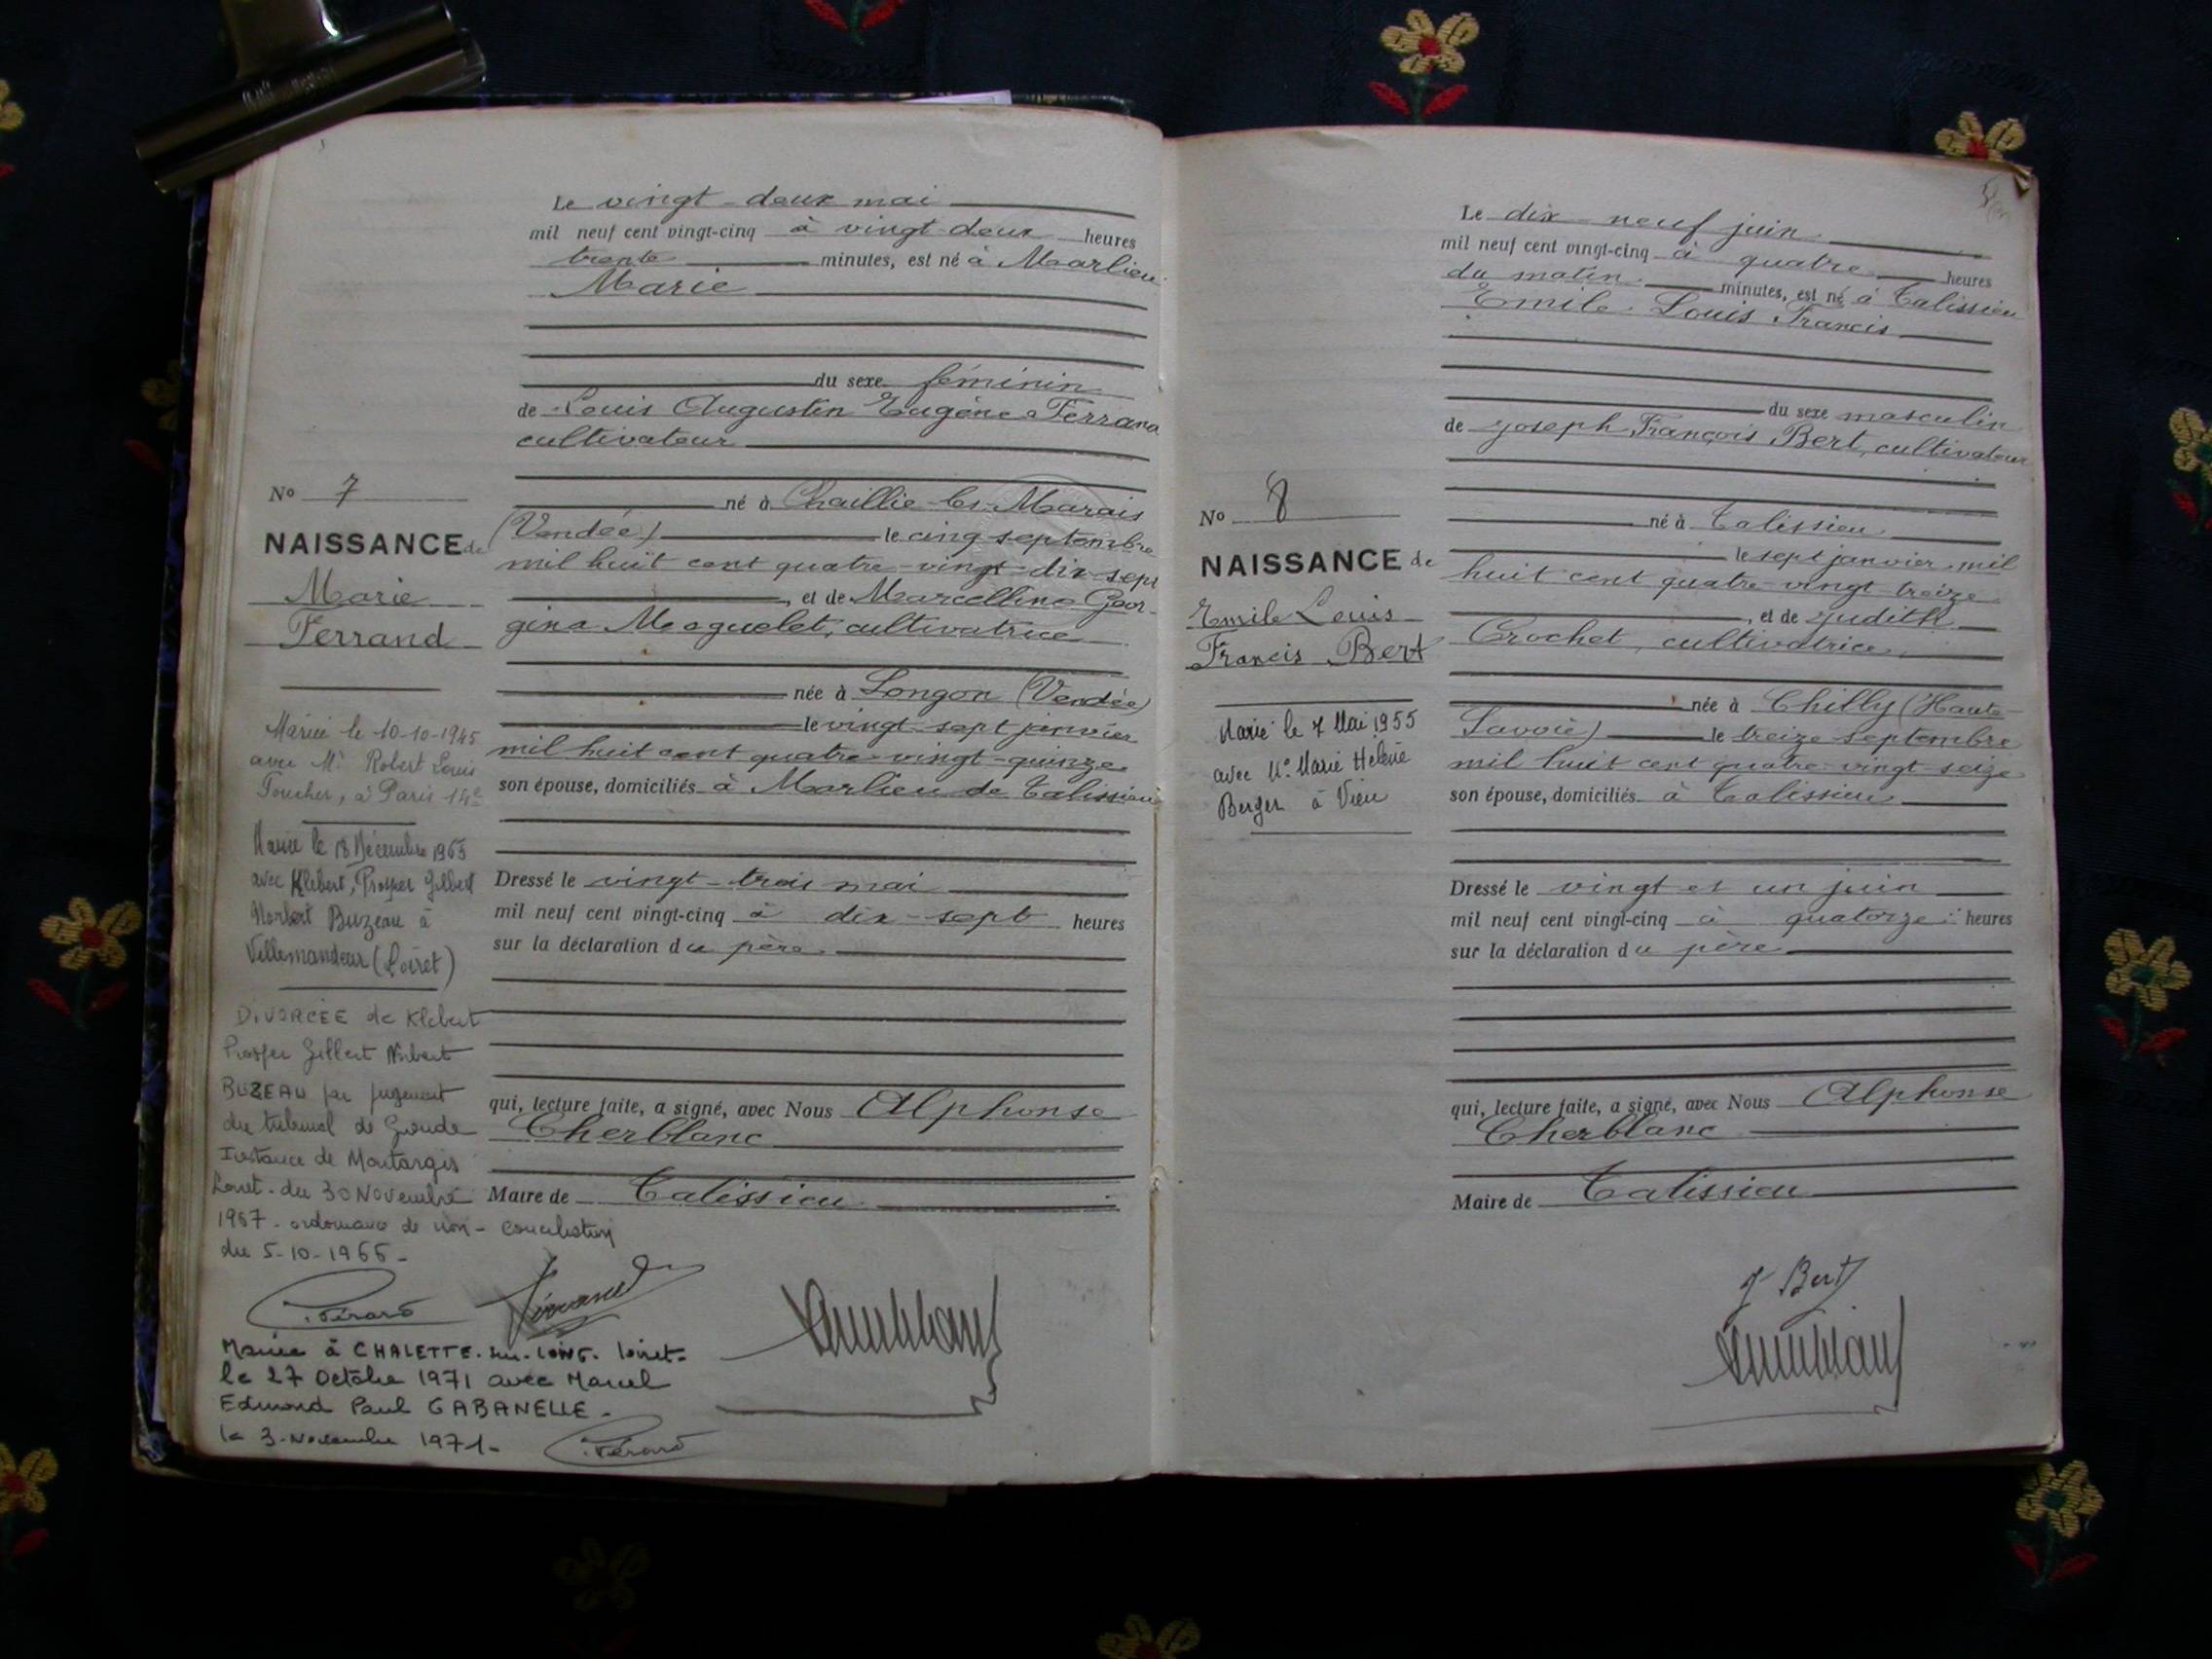 Le vingt-deux mai
mil neuf cent vingt-cinq à vingt-deux heures
trente minutes, est né à Marlieu
Marie
du sexe féminin
de Louis Augustin Eugène Ferrand
cultivateur
né à Chaillié-les-Marais
(Vendée) le cinq septembre
mil huit cent quatre-vingt-dix-sept
, et de Marcelline Geor-
gina Maquelet, cultivatrice
née à Longon (Vendée)
le vingt-sept janvier
mil huit cent quatre-vingt-quinze
son épouse, domiciliés à Marlieu de Talissieu
Dressé le vingt-trois mai
mil neuf cent vingt-cinq à dix-sept heures
sur la déclaration du père
qui, lecture faite, a signé, avec Nous Alphonse
Cherblanc
Maire de Talissieu
No 7
NAISSANCE de
Marie
Ferrand
Mariée le 10-10-1945
avec Mr Robert Louis
Foucher, à Paris 14e
Mariée le 18 Décembre 1963
avec Klebert, Prosper Gilbert
Norbert Buzeau à
Villemandeur (Loiret)
DIVORCÉE de Klebert
Prosper Gilbert Norbert
BUZEAU par jugement
du tribunal de Grande
Instance de Montargis
Loiret. du 30 Novembre
1967 - ordonnance de non-conciliation
du 5-10-1966 -
Pérard
Ferrand
Mariée à CHALETTE-sur-LOING. Loiret-
le 27 Octobre 1971 avec Marcel
Edmond Paul GABANELLE -
le 3 Novembre 1971-
Pérard
Le dix-neuf juin
mil neuf cent vingt-cinq à quatre heures
du matin minutes, est né à Talissieu
Emile Louis Francis
du sexe masculin
de Joseph François Bert, cultivateur
né à Talissieu
le sept janvier mil
huit cent quatre-vingt-treize
, et de Judith
Crochet, cultivatrice,
née à Chilly (Haute-
Savoie) le treize septembre
mil huit cent quatre-vingt-seize
son épouse, domiciliés à Talissieu
Dressé le vingt et un juin
mil neuf cent vingt-cinq à quatorze heures
sur la déclaration du père
qui, lecture faite, a signé, avec Nous Alphonse
Cherblanc
Maire de Talissieu
J Bert
No 8
NAISSANCE de
Emile Louis
Francis Bert
Marié le 7 Mai 1955
avec Me Marie Hélène
Berger à Vieu